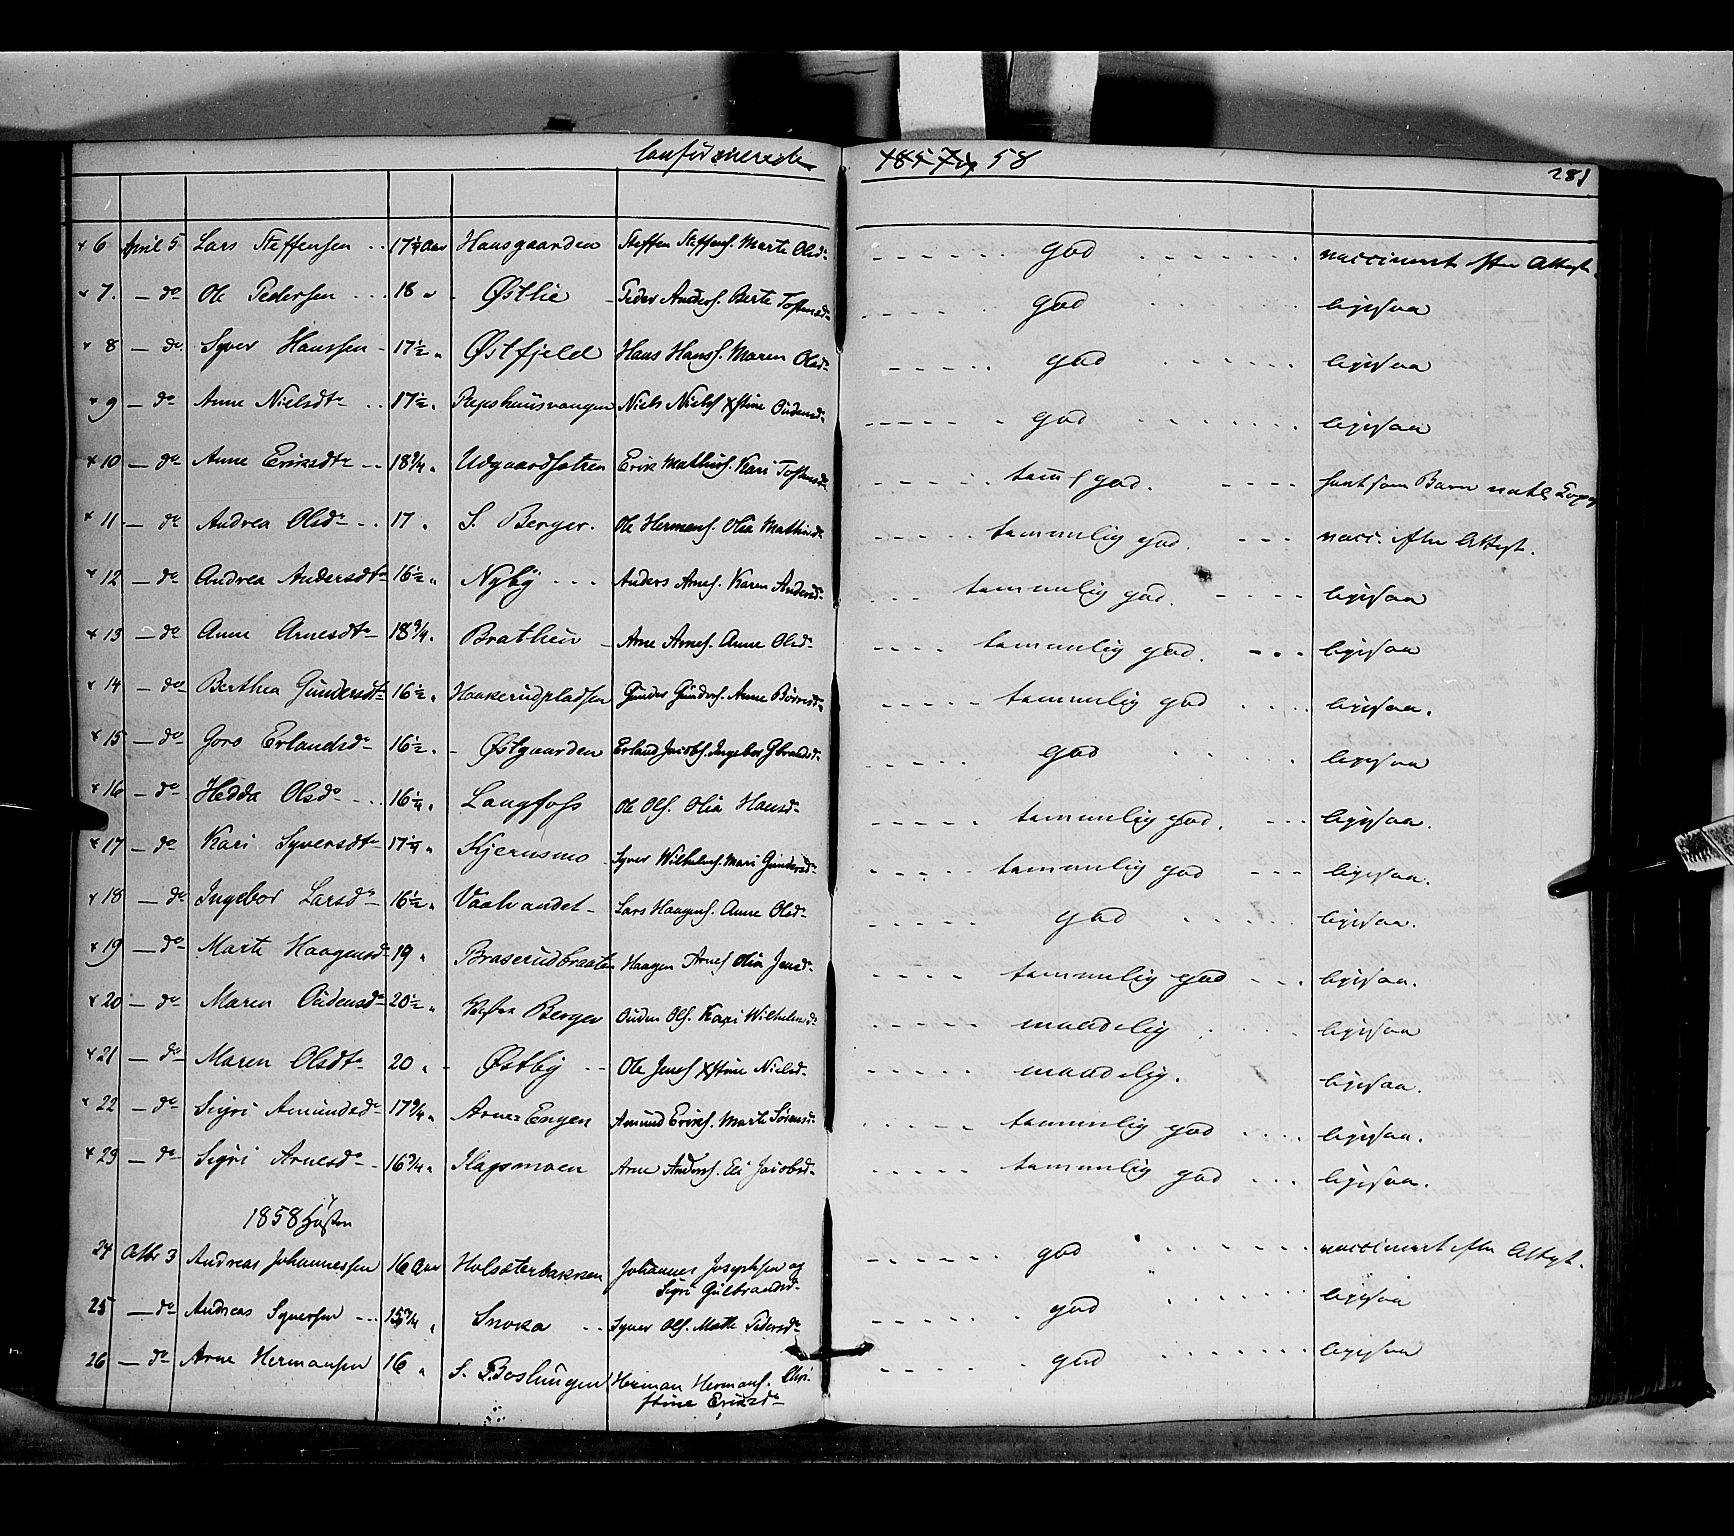 confirmerede 1857 og 58 281
6 April 5 Lars Steffensen 17 1/4 Aar Hansgaarden Steffen Steffens. Marte Olsd. god vaccineret efter Attest.
7. do Ole Pedersen 18 " Østlie Peder Anders. Berte Tostensd. god ligesaa
8 do Syver Hanssen 17 1/2 " Østfjeld Hans Hanss. Maren Olsd. god ligesaa
9 do Anne Nielsdtr 17 1/2 " Niels Niels. Xstine Oudensd. god ligesaa
10 do Anne Eriksdtr 18 3/4 " Udgaardsætren Erik Mathias. Kari Tostensd. tem. god. havt som Barn natl. Kopp
11 do Andrea Olsdr 17 " S. Berger. Ole Hermans. Olia Mathiasd. temmelig god. vacc. efter Attest.
12 do Andrea Andersdtr 16 1/2 " Nyby Anders Arnes. Karen Andersd. temmelig god. ligesaa
13 do Anne Arnesdtr 18 3/4 " Brathein Arne Arnes. Anne Olsd. temmelig god. ligesaa
14 do Berthea Gundersdtr 16 1/2 " Haakerudpladsen Gunder Gunders. Anne temmelig god ligesaa.
15 do Goro Erlandsdr 16 1/2 " Østgaarden Erland Jacobs. Ingebor Gbrandsd. god ligesaa
16 do Hedda Olsdr 16 1/4 " Langfoss Ole Ols. Olia Hansd. temmelig god. ligesaa.
17 do Kari Syversdtr 17 1/4 " Kjernsmo Syver Wilhelms. Mari Gundersd. temmelig god ligesaa.
18 do Ingebor Larsdr 16 1/2 " Vaalvandet Lars Haagens. Anne Olsd. god ligesaa.
19 do Marte Haagensdr 19 " Braserudbraaten Haagen Arnes. Olia Jensd. temmelig god ligesaa.
20 do Maren Oudensdr 20 1/2 " Vestre Berger Ouden Ols. Kari Wilhelmsd. maadelig ligesaa
21 do Maren Olsdtr 20 " Østby Ole Jens. Xstine Nielsd. maadelig. ligesaa.
22 do Sigri Amundsdr 17 3/4 " Arne-Engen Amund Eriks. Marte Sørensd. temmelig god ligesaa.
23 do Sigri Arnesdr 16 3/4 " Flagsmoen Arne Anders. Eli Jacobsd. temmelig god ligesaa.
1858 Høsten
24 Octbr 3 Andreas Johannessen 16 Aar Holsæterbakken Johannes Josephsen og god vaccineret efter Attest.
Sigri Gulbrandsd.
25 do Andreas Syversen 15 3/4 " Snoka Syver Ols. Mathe Pedersd. god ligesaa
26 do Arne Hermansen 16 " S. Boslungen Herman Hermans. Chri- god ligesaa
stine Eriksd.